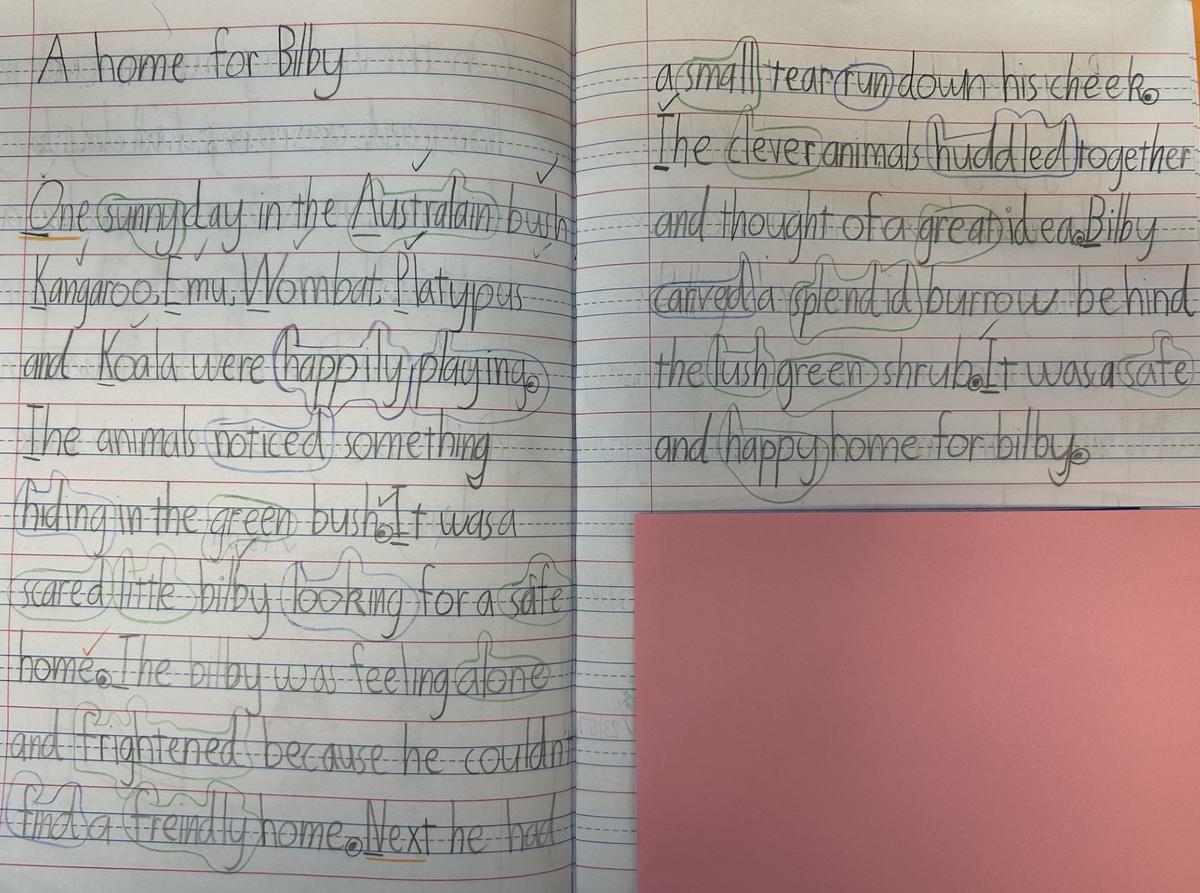 A home for Bilby
One sunny day in the Australain bush
Kangaroo, Emu, Wombat, Platypus
and Koala were happily playing.
The animals noticed something
hiding in the green bush. It was a
scared little bilby looking for a safe
home. The bilby was feeling alone
and frightened because he couldn't
find a freindly home. Next he had
a small tear run down his cheek.
The clever animals huddled together
and thought of a great idea. Bilby
carved a splendid burrow behind
the lush green shrub. It was a safe
and happy home for bilby.